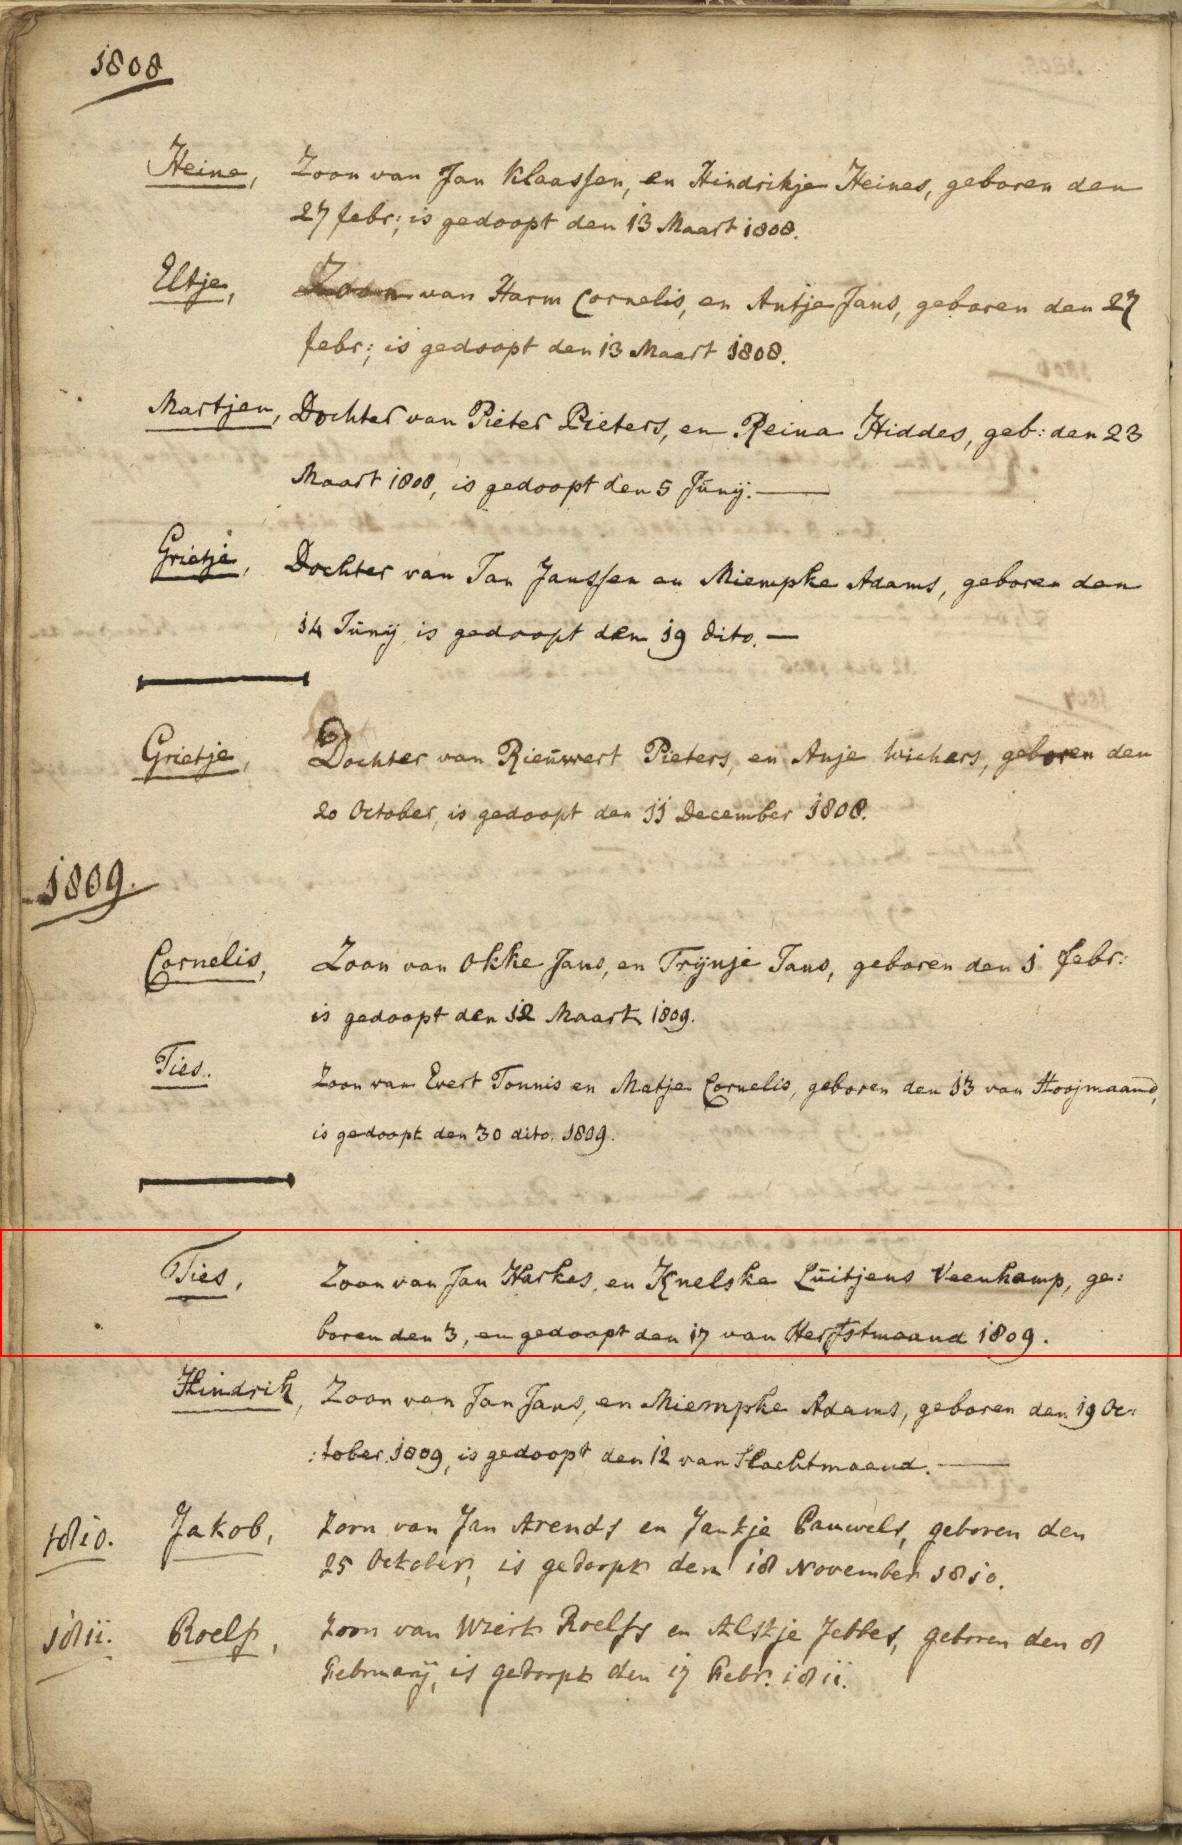 1808
Heine, Zoon van Jan Klaassen, en Hindrikje Heines, geboren den
27 febr; is gedoopt den 13 Maart 1808.
Eltje, Zoon van Harm Cornelis, en Antje Jans, geboren den 27
febr; is gedoopt den 13 Maart 1808.
Martjen, Dochter van Pieter Pieters, en Reina Hiddes, geb: den 23
Maart 1808, is gedoopt den 5 Junij. —
Grietje, Dochter van Jan Janssen en Miempke Adams, geboren den
14 Junij is gedoopt den 19 dito. —
Grietje, Dochter van Rieuwert Pieters, en Anje Wichers, geboren den
20 October, is gedoopt den 11 December 1808.
1809.
Cornelis, Zoon van Okke Jans, en Trijnje Jans, geboren den 1 febr:
is gedoopt den 12 Maart 1809.
Ties. Zoon van Evert Tonnis en Matje Cornelis, geboren den 13 van Hoojmaand,
is gedoopt den 30 dito. 1809.
Ties, Zoon van Jan Harkes, en Knelske Luitjens Veenkamp, ge:
boren den 3, en gedoopt den 17 van Herfstmaand 1809.
Hindrik, Zoon van Jan Jans, en Miempke Adams, geboren den 19 Oc:
:tober 1809, is gedoopt den 12 van Slachtmaand. —
1810. Jakob, Zoon van Jan Arends en Jantje Pauwels, geboren den
25 October, is gedoopt den 18 November 1810.
1811. Roelf, Zoon van Wiert Roelfs en Alstje Jebbes, geboren den 8
Februarij, is gedoopt den 17 Febr. 1811.